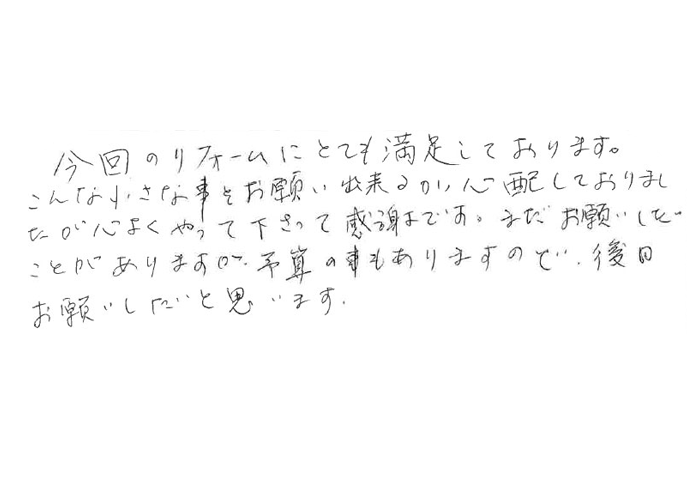 今回のリフォームにとても満足しております。
こんな小さな事をお願い出来るか心配しておりまし
たが心よくやって下さって感謝です。まだお願いしたい
ことがありますが、予算の事もありますので、後日
お願いしたいと思います。